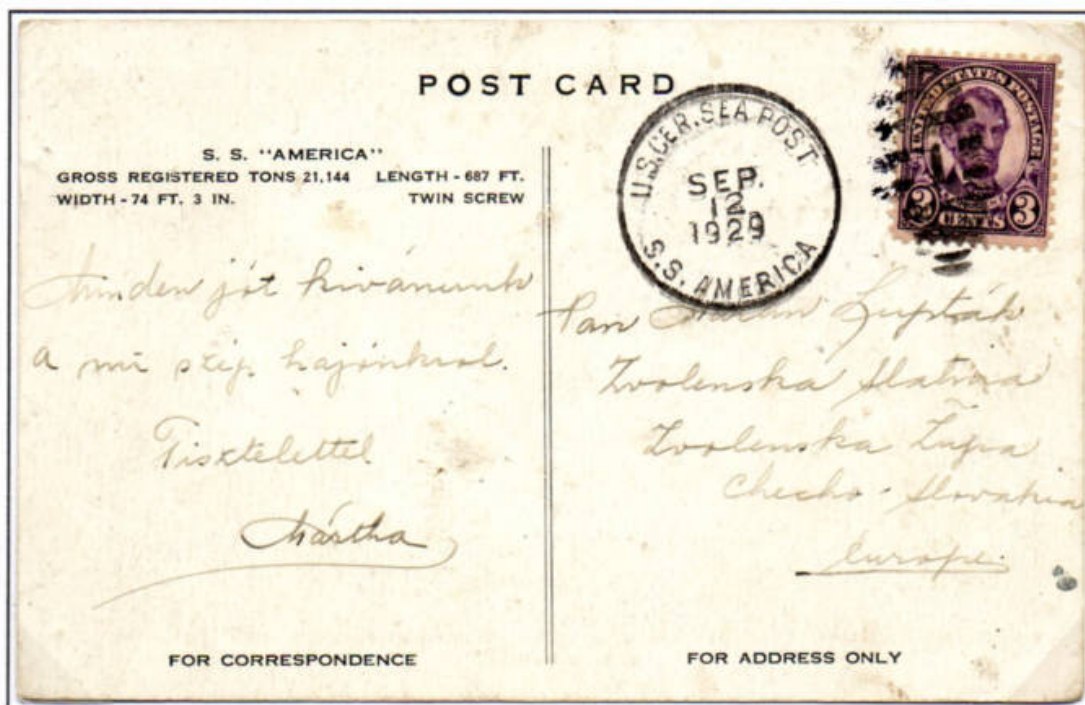 POST CARD
S. S. "AMERICA"
GROSS REGISTERED TONS 21,144 LENGTH - 687 FT.
WIDTH - 74 FT. 3 IN. TWIN SCREW
Minden jót kivánunk
a mi szép hajónkrol.
Tisztelettel
Mártha
FOR CORRESPONDENCE
U.S. GER. SEA POST
SEP.
1929
S.S. AMERICA
UNITED STATES POSTAGE
3 CENTS 3
Pan Lupták
Zvolenská Slatina
Zvolenska Župa
Checho-Slovakia
Europe.
FOR ADDRESS ONLY